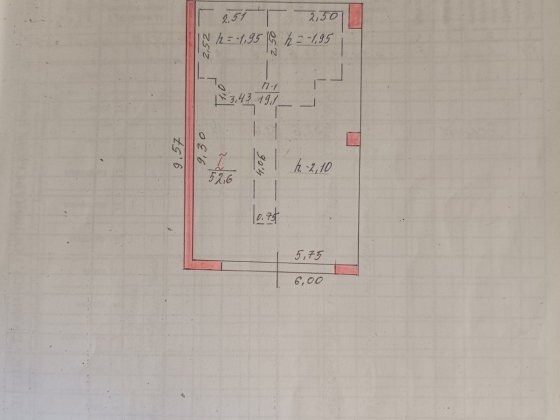 2.51
2,50
2,52
h=-1,95
2,50
h=-1,95
1,0
3,43
П-1
19,1
9.57
9,30
I
52,6
4,06
h-2,10
0.75
5,75
6,00